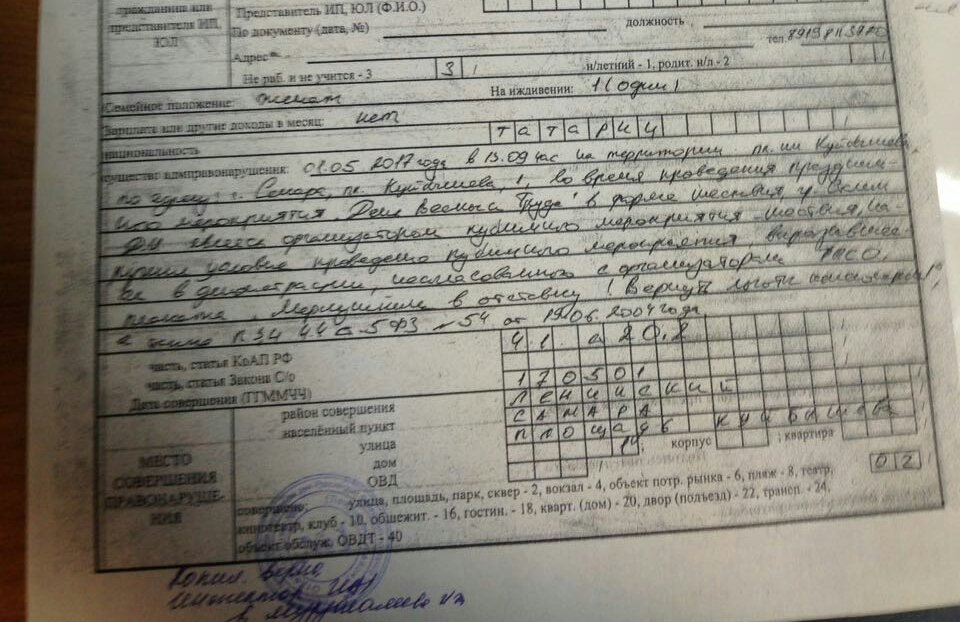 гражданине или
представителе ИП,
ЮЛ
Представитель ИП, ЮЛ (Ф.И.О.)
По документу (дата, №)
должность
тел.
Адрес
Не раб. и не учится - 3
3
н/летний - 1, родит. н/л - 2
Семейное положение: женат
На иждивении: 1 (один)
Зарплата или другие доходы в месяц: нет
национальность
татарин
существо адмправонарушения: 01.05 2017 года в 13.09 час на территории пл. им Куйбышева
по адресу: г. Самара, пл. Куйбышева, 1, во время проведения празднич-
ного мероприятия „День Весны и Труда" в форме шествия, гр.
организатором публичного мероприятия - шествия, на-
условие проведения публичного мероприятия, выразившее-
ся в демонстрации, несогласованного с организатором
плаката „ в отставку! Вернуть льготы
а также от 19.06.2004 года
часть, статья КоАП РФ
41 а 20.2
часть, статья Закона С/о
Дата совершения (ГГММЧЧ)
170501
район совершения
Ленинский
населённый пункт
Самара
улица
площадь Куйбышева
дом
корпус
; квартира
ОВД
02
МЕСТО
СОВЕРШЕНИЯ
ПРАВОНАРУШЕ-
НИЯ
совершено: улица, площадь, парк, сквер - 2, вокзал - 4, объект потр. рынка - 6, пляж - 8, театр,
кинотеатр, клуб - 10, общежит. - 16, гостин. - 18, кварт. (дом) - 20, двор (подъезд) - 22, трансп. - 24,
объект обслуж. ОВДТ - 40
Копия верна
Инспектор